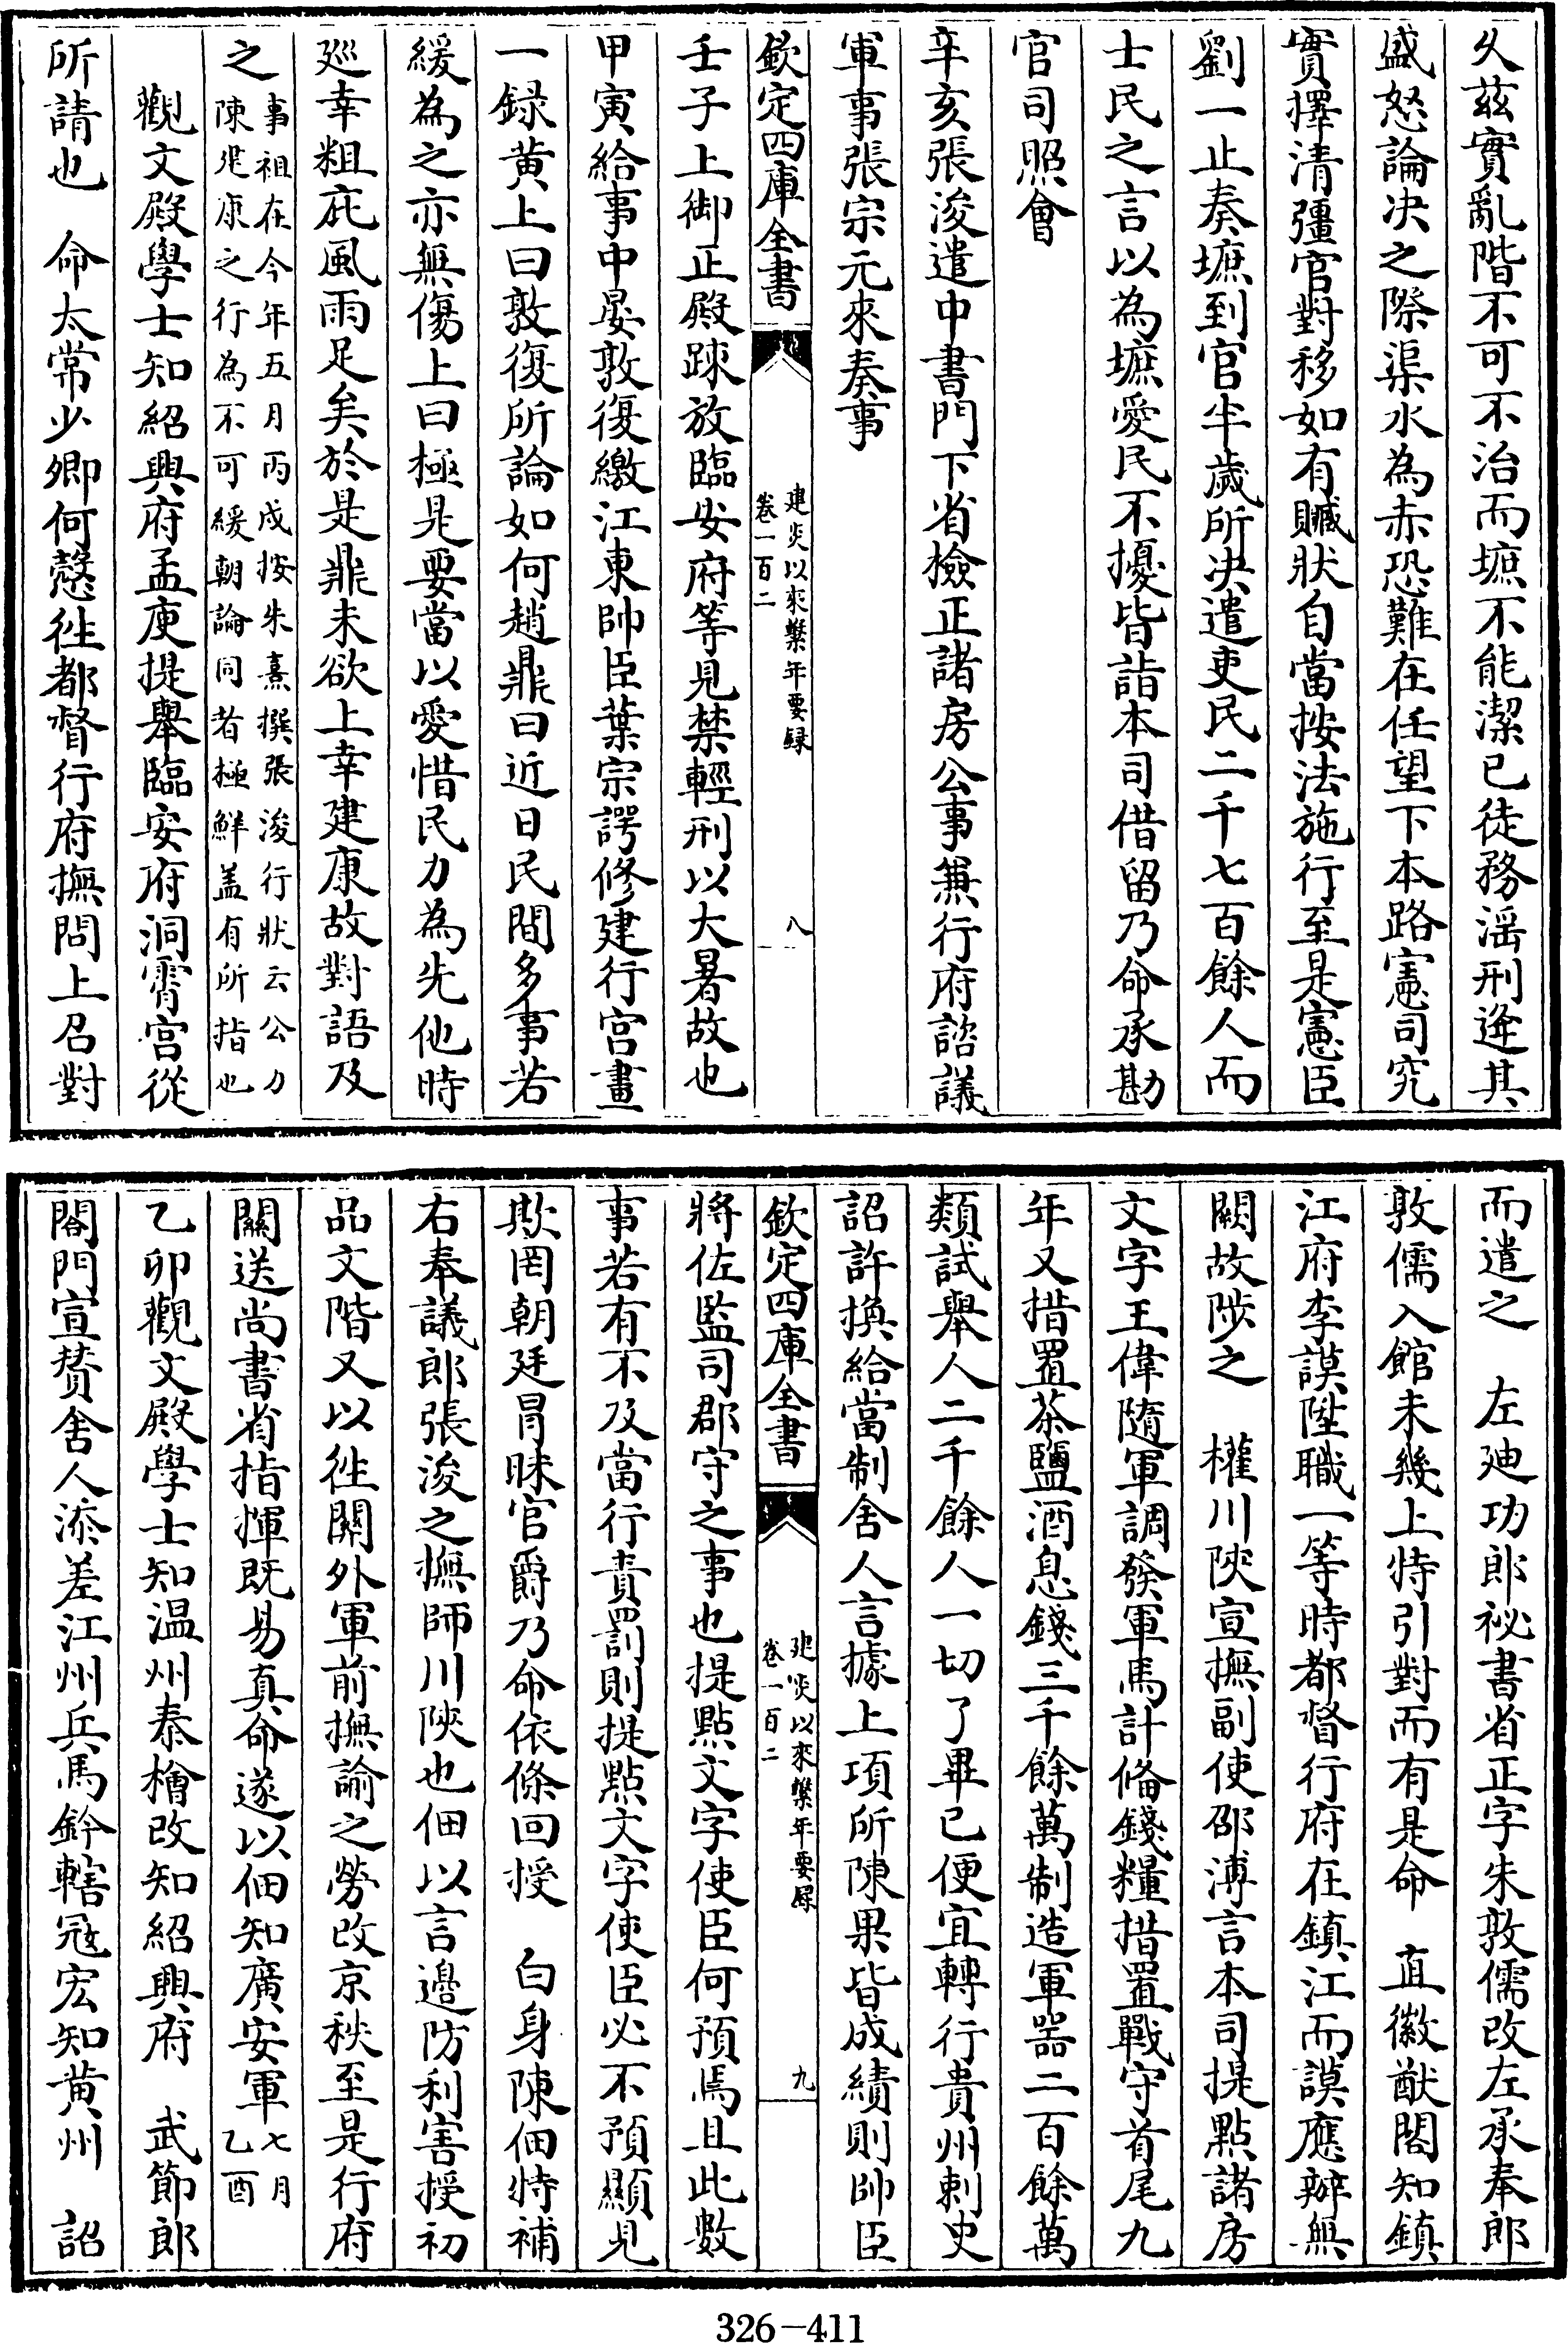 久茲實亂階不可不治而墌不能潔已徒務淫刑逄其
盛怒論决之際渠水為赤恐難在任望下本路憲司究
實擇清彊官對移如有贓狀自當按法施行至是憲臣
劉一止奏墌到官半歲所决遣吏民二千七百餘人而
士民之言以為墌愛民不擾皆詣本司借留乃命承勘
官司照會
辛亥張浚遣中書門下省檢正諸房公事兼行府諮議
軍事張宗元來奏事
欽定四庫全書
建炎以來繫年要録
卷一百二
八
壬子上御正殿踈放臨安府等見禁輕刑以大暑故也
甲寅給事中晏敦復繳江東帥臣葉宗諤修建行宫畫
一録黄上曰敦復所論如何趙鼎曰近日民間多事若
緩為之亦無傷上曰極是要當以愛惜民力為先他時
廵幸粗庇風雨足矣於是鼎未欲上幸建康故對語及
之
事祖在今年五月丙戌按朱熹撰張浚行狀云公力
陳建康之行為不可緩朝論同者極鮮盖有所指也
觀文殿學士知紹興府孟庾提舉臨安府洞霄宫從
所請也　命太常少卿何慤徃都督行府撫問上召對
而遣之　左廸功郎祕書省正字朱敦儒改左承奉郎
敦儒入館未幾上特引對而有是命　直徽猷閣知鎮
江府李謨陞職一等時都督行府在鎮江而謨應辦無
闕故陟之　權川陜宣撫副使邵溥言本司提點諸房
文字王偉隨軍調發軍馬計備錢糧措置戰守首尾九
年又措置茶鹽酒息錢三千餘萬制造軍器二百餘萬
類試舉人二千餘人一切了畢已便宜轉行貴州刺史
詔許換給當制舍人言據上項所陳果皆成績則帥臣
欽定四庫全書
建炎以來繫年要録
卷一百二
九
將佐監司郡守之事也提點文字使臣何預焉且此數
事若有不及當行責罰則提點文字使臣必不預顯見
欺罔朝廷冐昧官爵乃命依條回授　白身陳佃特補
右奉議郎張浚之撫師川陜也佃以言邊防利害授初
品文階又以徃關外軍前撫諭之勞改京秩至是行府
關送尚書省指揮既易真命遂以佃知廣安軍
七月
乙酉
乙卯觀文殿學士知温州秦檜改知紹興府　武節郎
閤門宣贊舍人添差江州兵馬鈐轄冦宏知黄州　詔
326-411